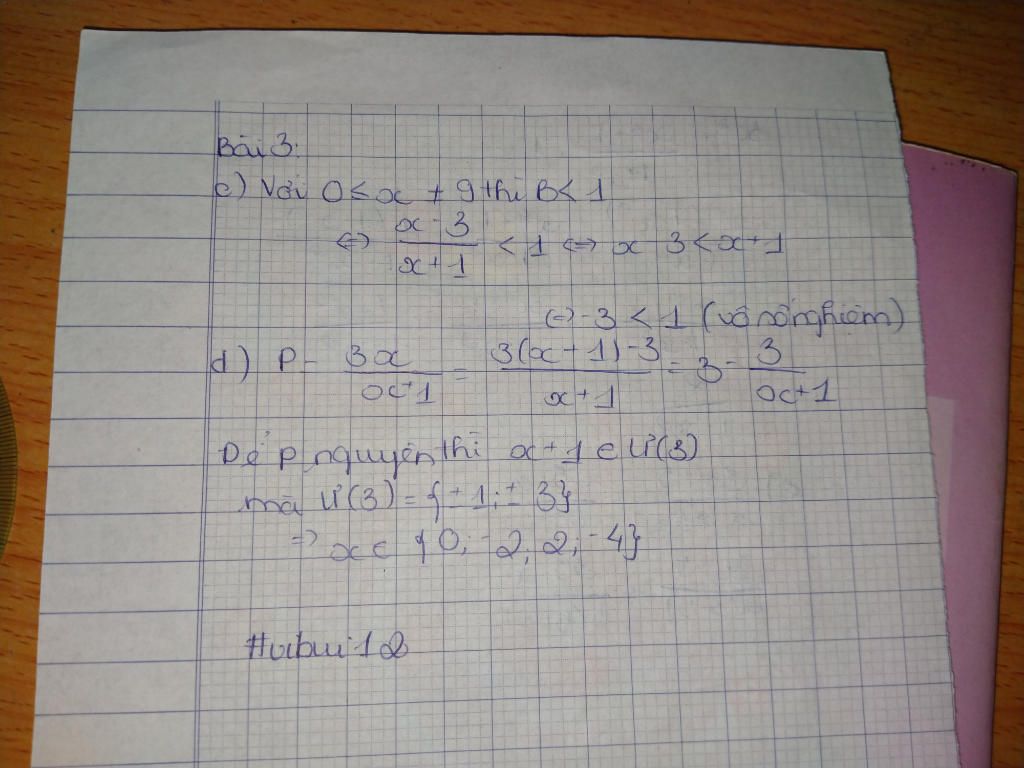 Bài 3:
c) Với 0 ≤ x ≠ 9 thì B < 1
⇔ x - 3 / x + 1 < 1 ⇔ x - 3 < x + 1
⇔ -3 < 1 (vô số nghiệm)
d) P = 3x / x + 1 = 3(x + 1) - 3 / x + 1 = 3 - 3 / x + 1
Để P nguyên thì x + 1 ∈ Ư(3)
mà Ư(3) = {±1; ±3}
⇒ x ∈ {0; -2; 2; -4}